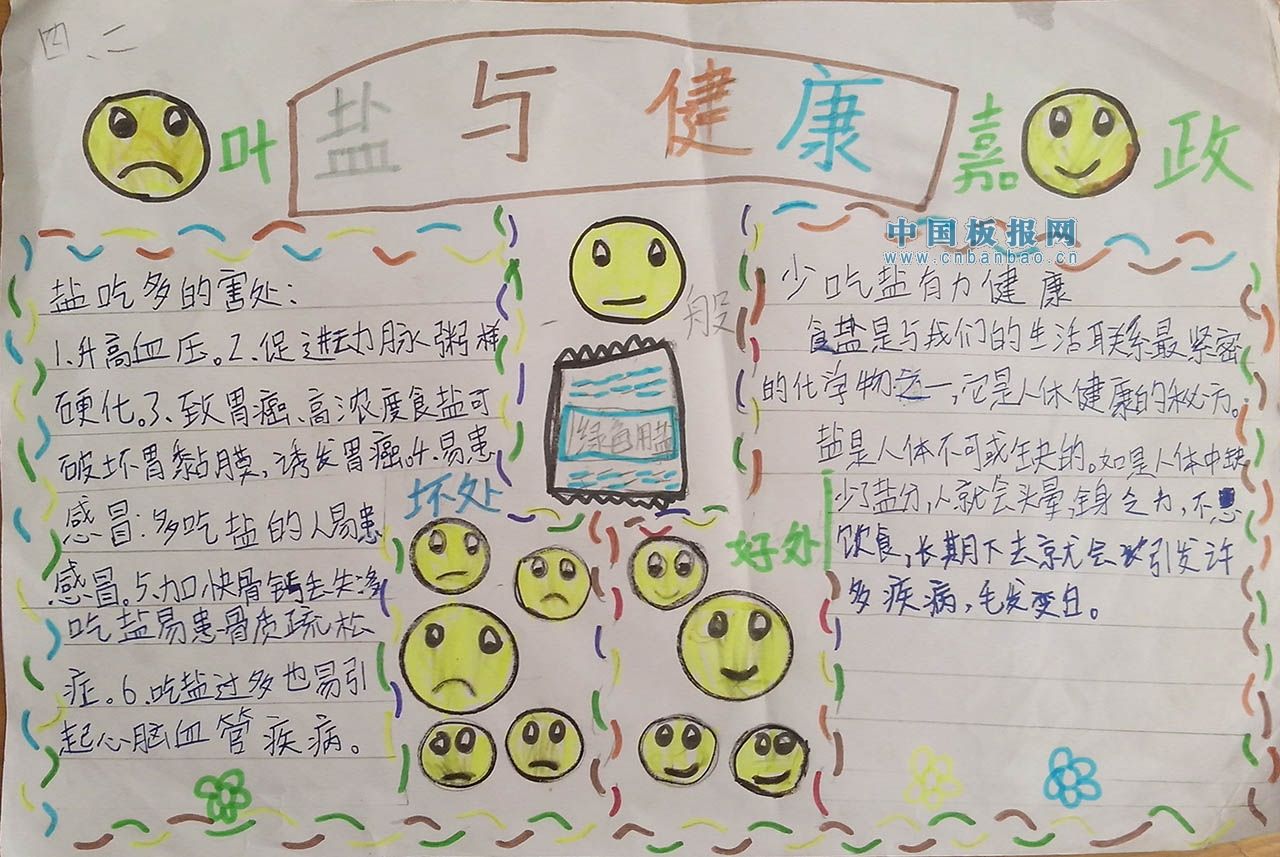 四、二
叶
盐与健康
嘉
政
中国板报网
www.cnbanbao.cn
盐吃多的害处：
1、升高血压。2、促进动脉粥样
硬化。3、致胃癌、高浓度食盐可
破坏胃黏膜，诱发胃癌。4、易患
感冒：多吃盐的人易患
感冒。5、加快骨钙丢失，多
吃盐易患骨质疏松
症。6、吃盐过多也易引
起心脑血管疾病。
一般
绿色用盐
坏处
好处
少吃盐有力健康
食盐是与我们的生活联系最紧密
的化学物之一，它是人体健康的秘方。
盐是人体不可或缺的。如是人体中缺
少了盐分，人就会头晕，全身乏力，不思
饮食，长期下去就会引发许
多疾病，毛发变白。